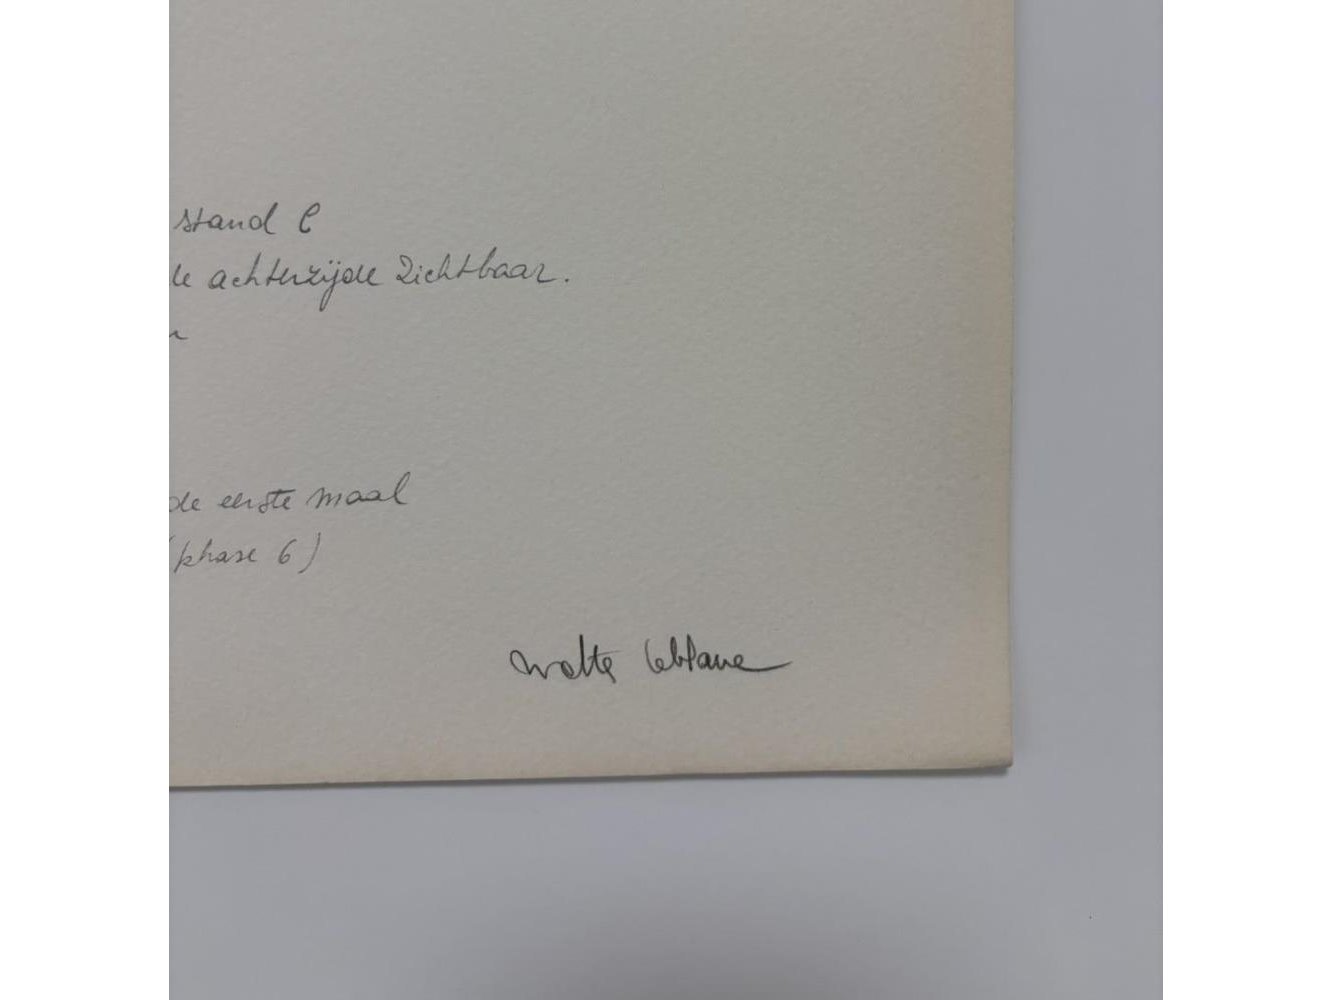 stand C
de achterzijde zichtbaar.
de eerste maal
(phase 6)
Walter Leblanc